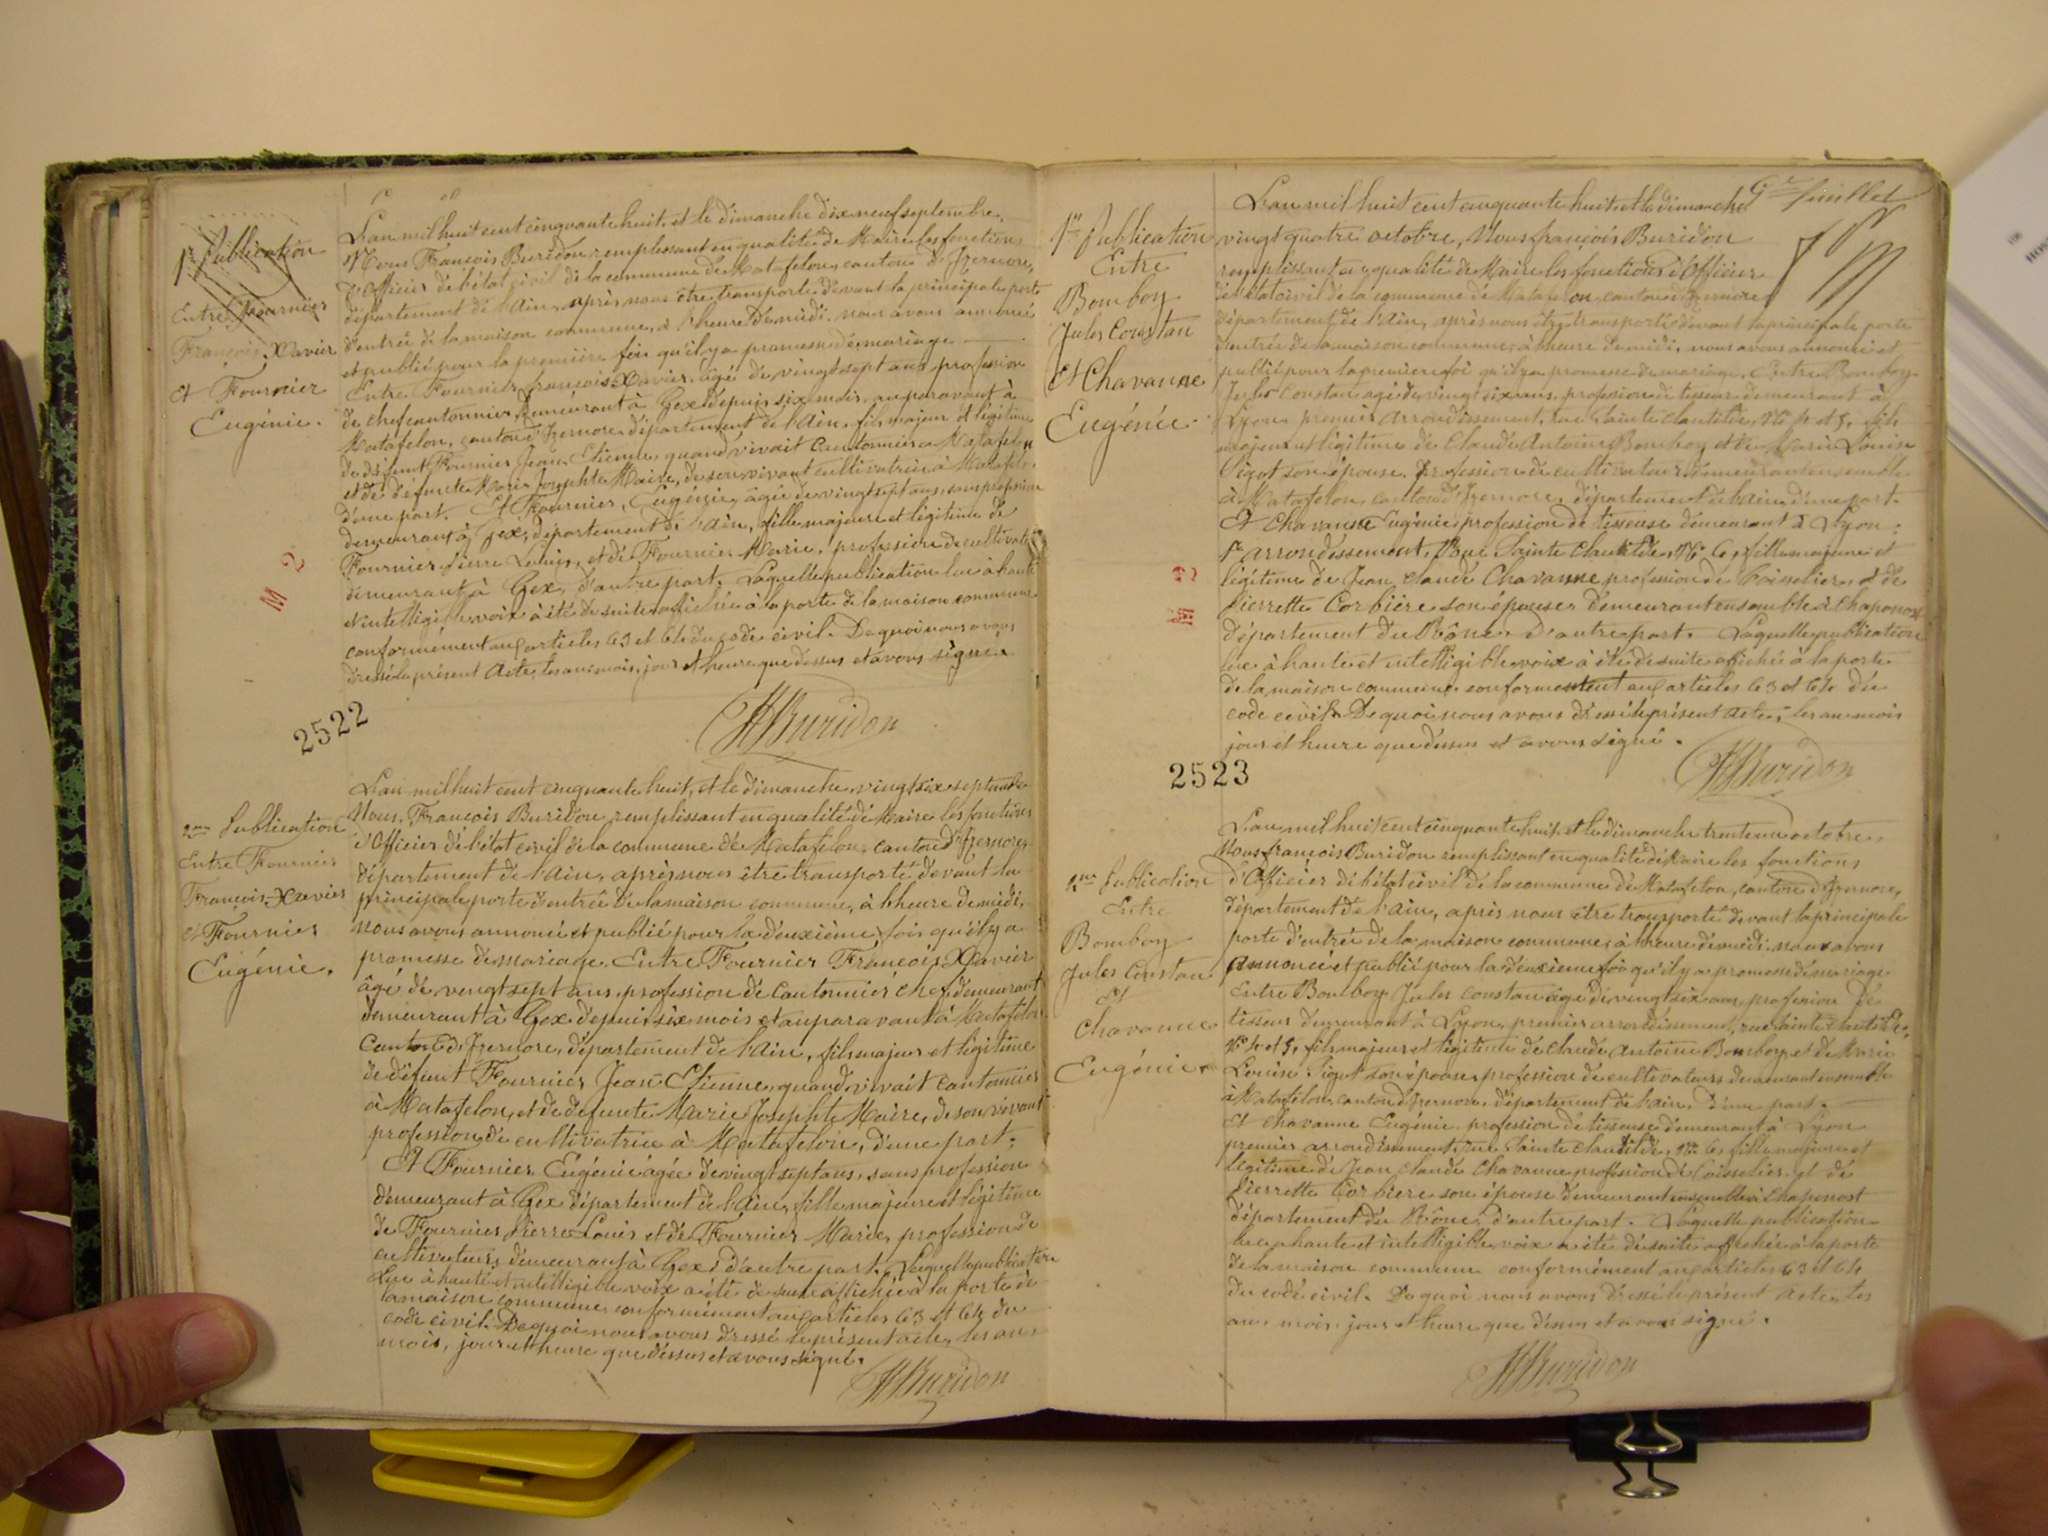 1re Publication
Entre Fournier
François Xavier
et Fournier
Eugénie.
M 2
L'an mil huit cent cinquante huit, et le dimanche dix neuf septembre,
Nous François Buridon remplissant en qualité de Maire les fonctions
d'Officier de l'état civil de la commune de Matafelon, canton d'Izernore,
département de l'Ain, après nous être transporté devant la principale porte
d'entrée de la maison commune, à l'heure de midi, nous avons annoncé
et publié pour la première fois qu'il y a promesse de mariage
Entre Fournier françois Xavier, âgé de vingt sept ans, profession
de chef cantonnier, demeurant à Gex depuis six mois, auparavant à
Matafelon, canton d'Izernore département de l'Ain, fils majeur et légitime
de défunt Fournier Jean Etienne, quand vivait Cantonnier à Matafelon
et de défunte Marie Josephte Maire, de son vivant cultivatrice à Matafelon,
d'une part. Et Fournier, Eugénie, âgée de vingt sept ans, sans profession
demeurant à Gex, département de l'Ain, fille majeure et légitime de
Fournier Pierre Louis, et de Fournier Marie, profession de cultivateurs
demeurant à Gex, d'autre part. Laquelle publication lue à haute
et intelligible voix à été de suite affichée à la porte de la maison commune
conformément aux articles 63 et 64 du code civil. De quoi nous avons
dressé le présent Acte, les an, mois, jour et heure que dessus et avons signé.
Buridon
2522
2me Publication
Entre Fournier
François Xavier
et Fournier
Eugénie.
L'an mil huit cent cinquante huit, et le dimanche vingt six septembre
Nous François Buridon remplissant en qualité de Maire les fonctions
d'Officier de l'état civil de la commune de Matafelon, canton d'Izernore,
département de l'Ain, après nous être transporté devant la
principale porte d'entrée de la maison commune, à l'heure de midi,
nous avons annoncé et publié pour la deuxième fois qu'il y a
promesse de mariage Entre Fournier François Xavier
âgé de vingt sept ans, profession de Cantonnier chef, demeurant
demeurant à Gex depuis six mois et auparavant à Matafelon
Canton d'Izernore, département de l'Ain, fils majeur et légitime
de défunt Fournier Jean Etienne, quand vivait cantonnier
à Matafelon, et de defunte Marie Josephte Maire, de son vivant
profession de cultivatrice à Matafelon, d'une part.
Et Fournier Eugénie âgée de vingt sept ans, sans profession
demeurant à Gex département de l'Ain, fille majeure et légitime
de Fournier Pierre Louis et de Fournier Marie, profession de
cultivateurs, demeurant à Gex, d'autre part. Laquelle publication
Lue à haute et intelligible voix a été de suite affichée à la porte de
la maison commune conformément aux articles 63 et 64 du
code civil. De quoi nous avons dressé le présent acte, les an,
mois, jour et heure que dessus et avons signé.
Buridon
1re Publication
Entre
Bomboy
Jules Constan
Et Chavanne
Eugénie.
juillet
L'an mil huit cent cinquante huit et le dimanche
vingt quatre octobre, Nous françois Buridon
remplissant en qualité de Maire les fonctions d'Officier
de l'état civil de la commune de Matafelon canton d'Izernore
département de l'Ain, après nous être transporté devant la principale porte
d'entrée de la maison commune, à l'heure de midi, nous avons annoncé et
publié pour la première foi qu'il y a promesse de mariage. Entre Bomboy
Jules Constan agé de vingt six ans, profession de tisseur demeurant à
Lyon, premier arrondissement, rue Sainte Clautilde, No 4 et 5, fils
majeur et légitime de Claude Antoine Bomboy et de Marie Louise
Pigot son épouse, profession de cultivateurs demeurant ensemble
à Matafelon, canton d'Izernore, département de l'Ain, d'une part.
Et Chavanne Eugénie profession de tisseuse demeurant à Lyon
1er arrondissement, Rue Sainte Clautilde, No 6, fille majeure et
légitime de Jean Claude Chavanne profession de boisselier, et de
Pierrette Corbière son épouse demeurant ensemble à Chaponost
département du Rhône, d'autre part. Laquelle publication
lue à haute et intelligible voix à été de suite affichée à la porte
de la maison commune conformément aux articles 63 et 64 du
code civil. De quoi nous avons dressé le présent acte, les an mois
jour et heure que dessus et avons signé.
Buridon
2523
2me Publication
Entre
Bomboy
Jules Constan
Et
Chavanne
Eugénie
L'an mil huit cent cinquante huit, et le dimanche trente un octobre,
Nous françois Buridon remplissant en qualité de Maire les fonctions
d'Officier de l'état civil de la commune de Matafelon, canton d'Izernore,
département de l'Ain, après nous être transporté devant la principale
porte d'entrée de la maison commune, à l'heure de midi nous avons
annoncé et publié pour la deuxieme foi qu'il y a promesse de mariage
Entre Bomboy Jules constan âgé de vingt six ans, profession de
tisseur demeurant à Lyon, premier arrondissement, rue Sainte Clautilde,
No 4 et 5, fils majeur et légitime de Claude Antoine Bomboy et de Marie
Louise Pigot son épouse, profession de cultivateurs demeurant ensemble
à Matafelon, canton d'Izernore, département de l'ain, d'une part.
Et Chavanne Eugénie, profession de tisseuse demeurant à Lyon
premier arrondissement, rue Sainte Clautilde, No 6, fille majeure et
légitime de Jean Claude Chavanne profession de boisselier, et de
Pierrette Corbiere son épouse demeurant ensemble à Chaponost
département du Rhône, d'autre part. Laquelle publication
lue à haute et intelligible voix a été de suite affichée à la porte
de la maison commune conformément aux articles 63 et 64
du code civil. De quoi nous avons dressé le présent acte, les
an, mois, jour et heure que dessus et avons signé.
Buridon